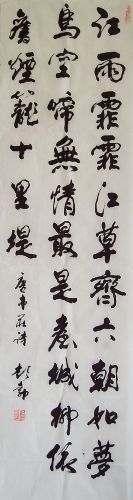 江雨霏霏江草齊六朝如夢
鳥空啼無情最是臺城柳依
舊煙籠十里堤
唐韋莊詩